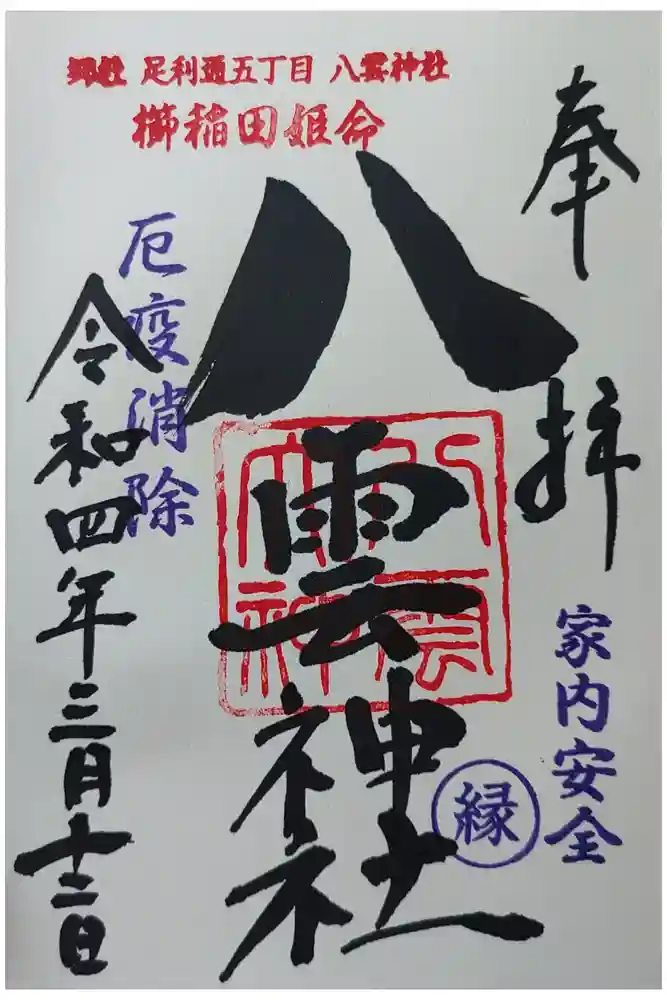 郷社 足利通五丁目 八雲神社
櫛稲田姫命
奉拝
家内安全
八雲神社
縁
厄疫消除
令和四年三月十二日